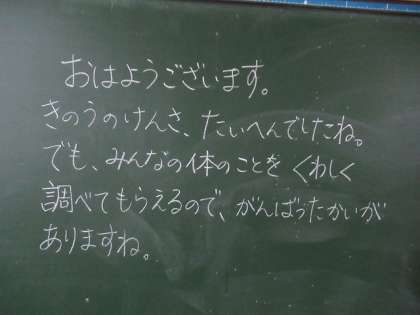 おはようございます。
きのうのけんさ、たいへんでしたね。
でも、みんなの体のことを くわしく
調べてもらえるので、がんばったかいが
ありますね。